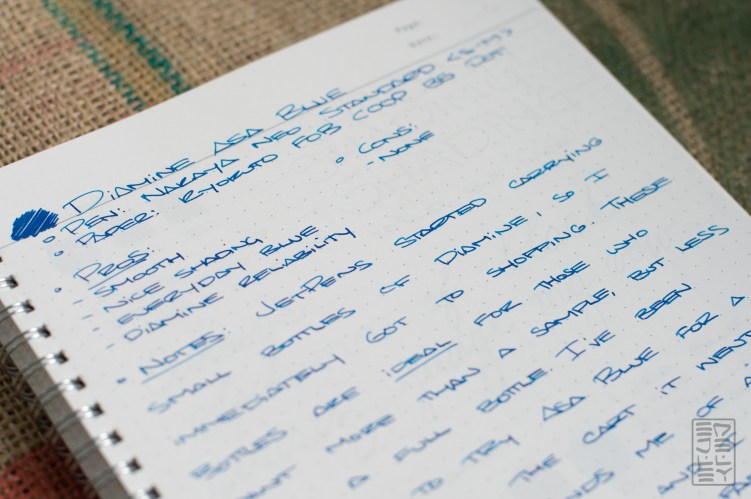 Page:
Date:
Diamine Asa Blue
• Pen: Nakaya Neo Standard (S-M)
• Paper: Kyokuto FOB COOP B5 Dot
• Pros:
- Smooth
- Nice shading
- Everyday blue
- Diamine reliability
• Cons:
- None
• Notes: JetPens started carrying
small bottles of Diamine, so I
immediately got to shopping. These
bottles are ideal for those who
want more than a sample, but less
a full bottle. I've been
to try Asa Blue for a
the cart it went
me of a